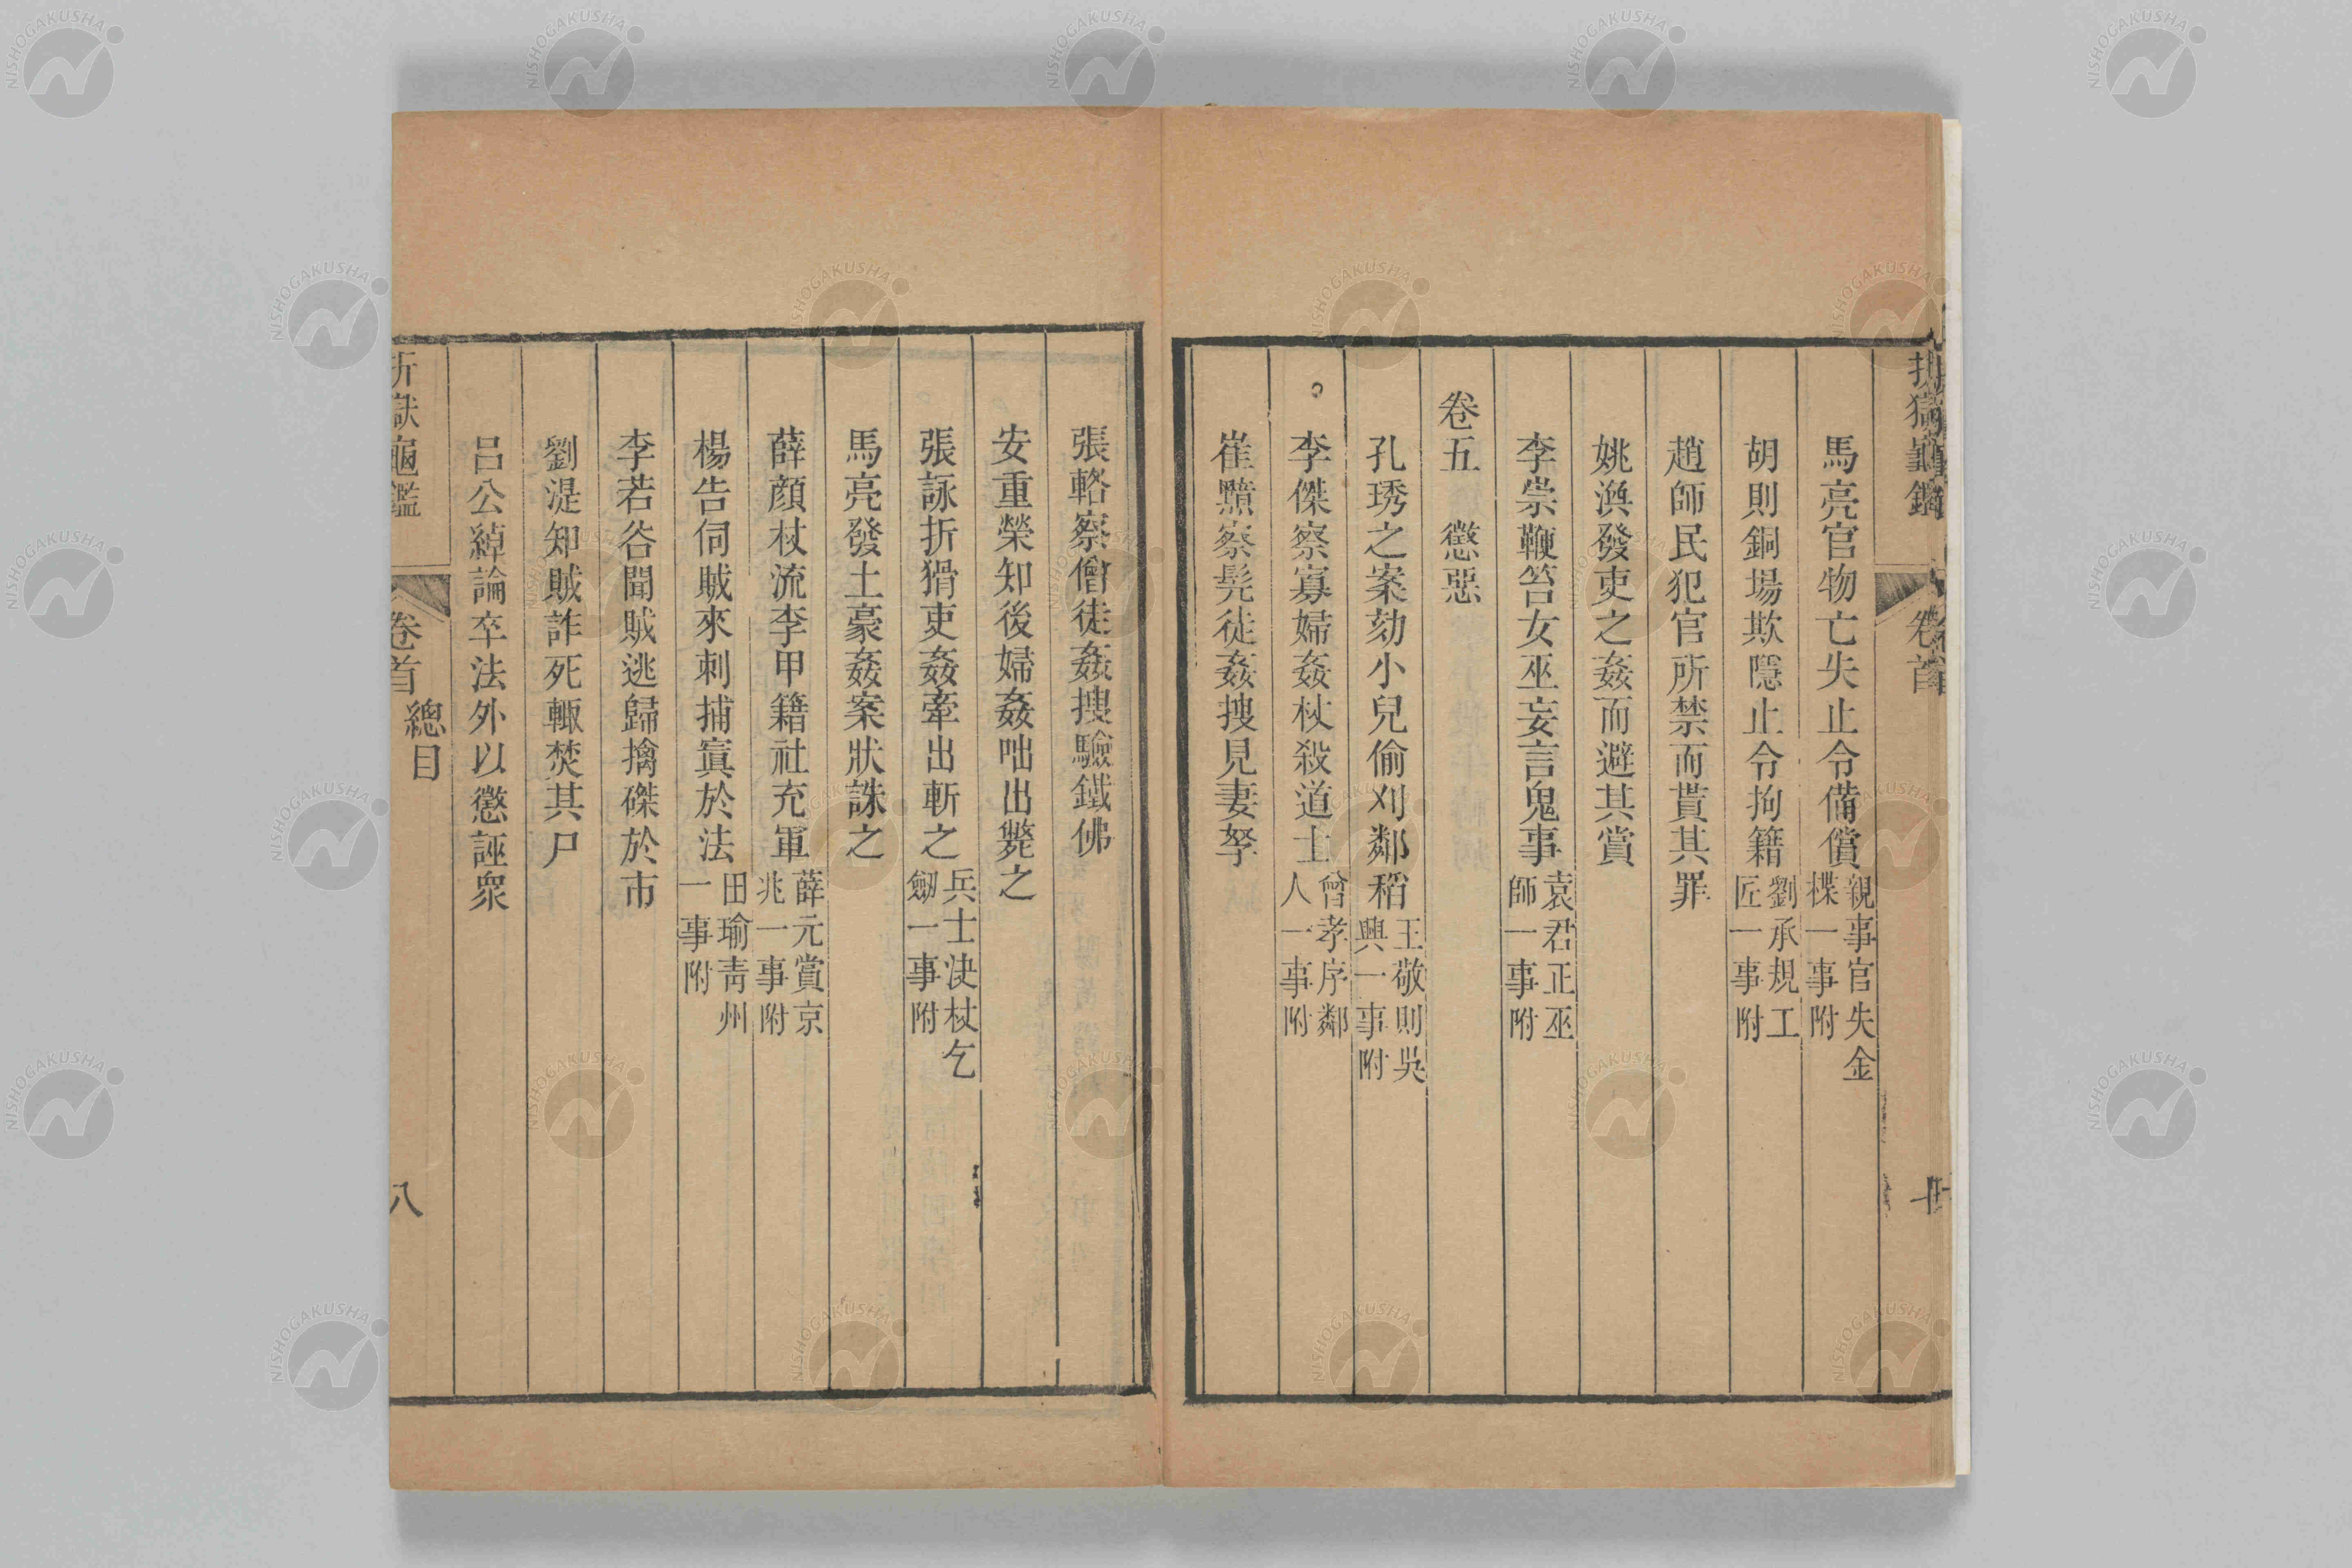 馬亮官物亡失止令備償親事官失金楪一事附
胡則銅場欺隱止令拘籍劉承規工匠一事附
趙師民犯官所禁而貰其罪
姚渙發吏之姦而避其賞
李崇鞭笞女巫妄言鬼事袁君正巫師一事附
卷五 懲惡
孔琇之案劾小兒偷刈鄰稻王敬則吳興一事附
李傑察寡婦姦杖殺道士曾孝序鄰人一事附
崔黯察髡徒姦搜見妻孥
張輅察僧徒姦搜驗鐵佛
安重榮知後婦姦咄出斃之
張詠折猾吏姦牽出斬之兵士決杖乞劒一事附
馬亮發土豪姦案狀誅之
薛顔杖流李甲籍社充軍薛元賞京兆一事附
楊告伺賊來刺捕寘於法田瑜靑州一事附
李若谷聞賊逃歸擒磔於市
劉湜知賊詐死輙焚其尸
呂公綽論卒法外以懲誣衆
折獄龜鑑 卷首 總目 八
NISHOGAKUSHA